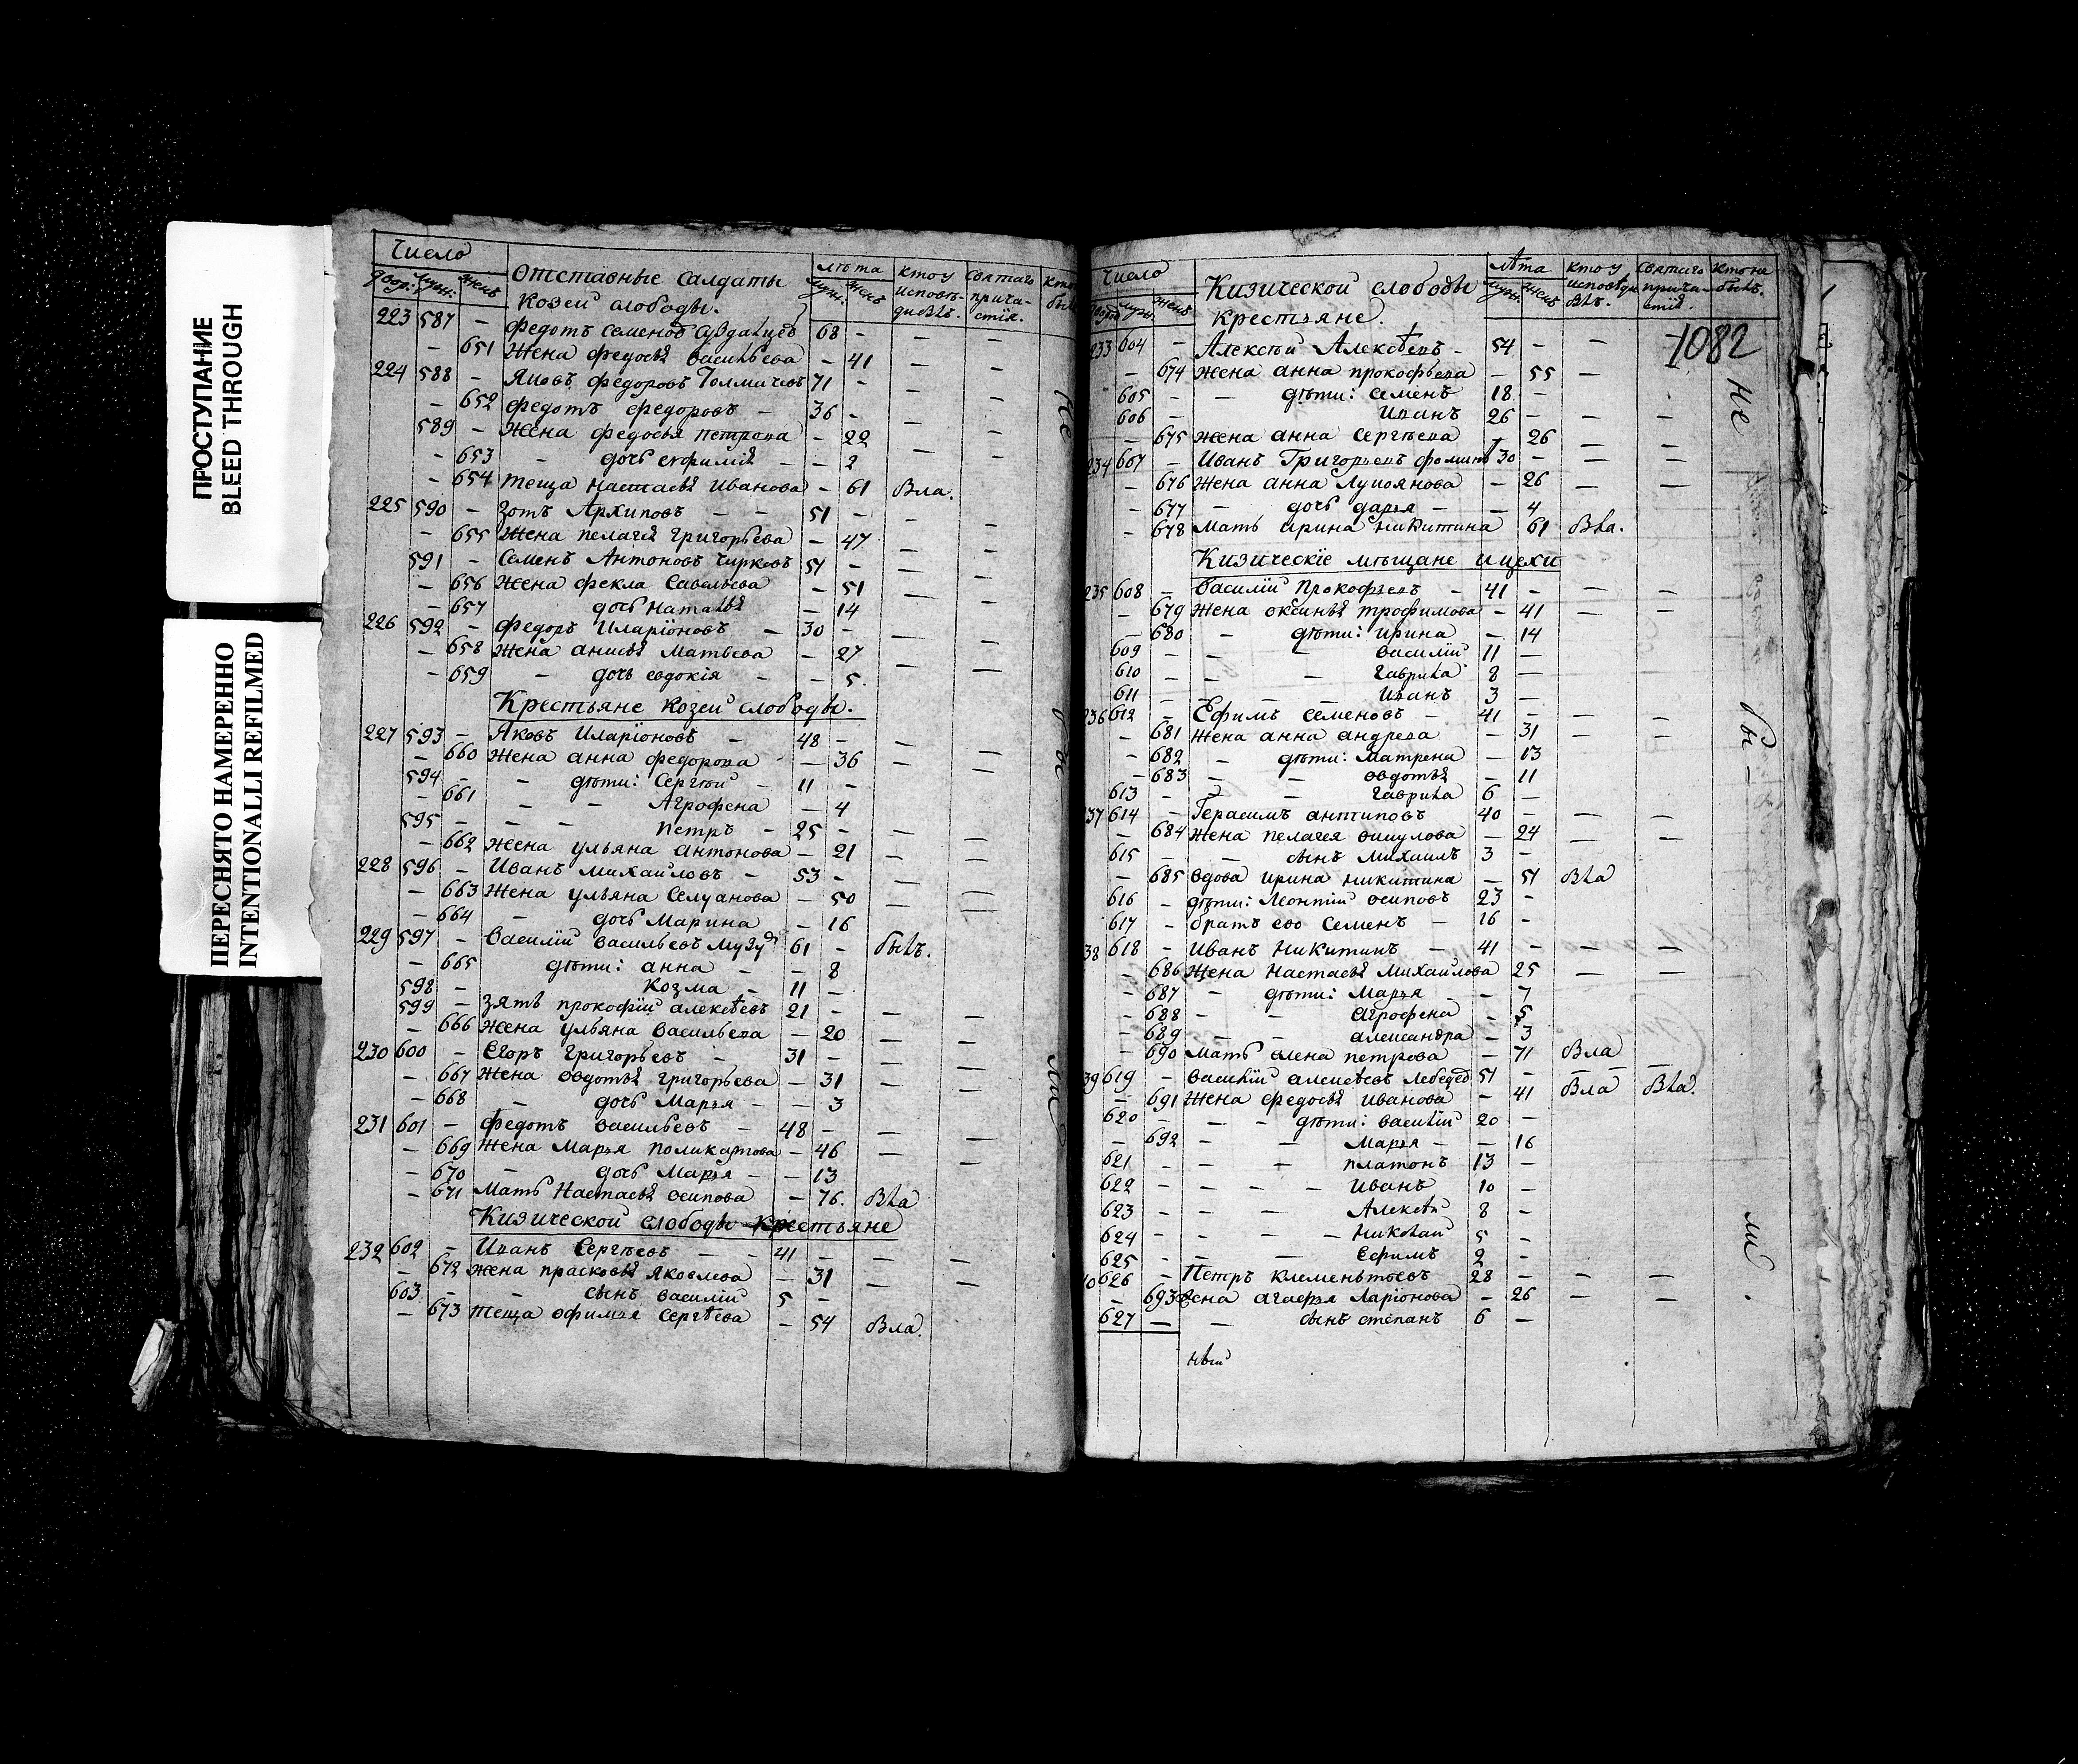 ПРОСТУПАНИЕ
BLEED THROUGH
ПЕРЕСНЯТО НАМЕРЕННО
INTENTIONALLI REFILMED
Число
Отставные салдаты
Козей слободы.
лѣта
муж: женъ
кто у исповѣдибылъ.
святаго причастія.
223 587 – Федотъ Семенов 68 – – –
– 651 Жена Федосья Васильева – 41 – –
224 588 – Яковъ Федоровъ Толмачевъ 71 – –
– 652 Федотъ Федоровъ – 36 – – –
589 – Жена Федосья Петрова – 22 – –
– 653 – дочь Ефимия – – 2
– 654 теща Настасья Иванова – 61 Была.
225 590 – Зотъ Архиповъ – – 51 – – –
– 655 Жена Пелагея Григорьева – 47 – –
591 – Семенъ Антоновъ Чирковъ 51 – – –
– 656 Жена Фекла Савельева – 51 – –
– 657 дочь Наталья – 14
226 592 – Федоръ Иларіоновъ – 30 – – –
– 658 Жена Анисья Матвеева – 27 – –
– 659 – дочь Евдокія – – 5.
Крестьяне Козей слободы.
227 593 – Яковъ Иларіоновъ – 48 – – –
– 660 Жена Анна Федорова – 36 – –
594 – дѣти: Сергѣй – 11 –
– 661 – – Агрофена – 4
595 – – – Петръ – 25 – – –
– 662 Жена Ульяна Антонова – 21 – –
228 596 – Иванъ Михайловъ – 53 – – –
– 663 Жена Ульяна Селуанова – 50 – –
– 664 – дочь Марина – 16
229 597 – Василій Васильевъ 61 – былъ.
– 665 дѣти: Анна – – 8
598 – Козма – 11 –
599 – зять Прокофій Алексѣевъ 21 – – –
– 666 Жена Ульяна Васильева – 20 – –
230 600 – Егоръ Григорьевъ – 31 – – –
– 667 Жена Овдотья Григорьева – 31 – –
– 668 – дочь Марья – – 3
231 601 – Федотъ Васильевъ – 48 – – –
– 669 Жена Марья Поликарпова – 46 – –
– 670 – дочь Марья – – 13
– 671 Мать Настасья Осипова – 76. Была
Кизической слободы крестьяне
232 602 – Иванъ Сергѣевъ – – 41 – – –
– 672 Жена Прасковья Яковлева – 31 – –
603. – – сынъ Василій 5 –
– 673 теща Офимья Сергѣева – 54 Была.
Не
бы
ли
Число
Кизической слободы
крестьяне.
лѣта
муж: женъ
кто у исповѣди былъ.
святаго причастія.
кто не былъ.
1082
233 604 – Алексѣй Алексѣевъ – 54 – –
– 674 Жена Анна Прокофьева – 55 –
605 – – дѣти: Семенъ 18 –
606 Иванъ 26 – – –
– 675 Жена Анна Сергѣева 26 – –
234 607 – Иванъ Григорьевъ Фоминъ 30 – – –
– 676 Жена Анна Лукоянова – 26 – –
– 677 – дочь Дарья – – 4
– 678 Мать Ирина Никитина 61 Была.
Кизическіе мѣщане и цехи
235 608 – Василій Прокофьевъ – 41 – – –
– 679 Жена Оксинья Трофимова – 41 – –
– 680 – дѣти: Ирина – 14
609 – – – Василій 11 –
610 – – – Гаврила 8 –
611 – – – Иванъ 3 –
236 612 – Ефимъ Семеновъ – 41 – – –
– 681 Жена Анна Андрева – 31 – –
– 682 – дѣти: Матрена – 13
– 683 – – Овдотья – 11
613 – – Гаврила 6 –
237 614 – Герасимъ Антиповъ 40 – – –
– 684 Жена Пелагея – 24 – –
615 – – сынъ Михаилъ 3 –
– 685 вдова Ирина Никитина – 51 Была
616 – дѣти: Леонтій Осиповъ 23 –
617 – братъ ево Семенъ – 16 –
238 618 – Иванъ Никитинъ – 41 – – –
– 686 Жена Настасья Михайлова 25 – –
– 687 – дѣти: Марья – – 7
– 688 – – Агрофена – 5
– 689 – – Александра – 3
– 690 Мать Олена Петрова – 71 Была
239 619 – Василій Алексѣевъ Лебедев 51 – – –
– 691 Жена Федосья Иванова – 41 Была Была.
620 – – дѣти: Василій 20 –
– 692 – – Марья – – 16
621 – – – Платонъ 13 –
622 – – – – Иванъ 10 –
623 – – – Алексѣй 8 –
624 – – – – Николай 5 –
625 – – – Ефимъ 2 –
240 626 – Петръ Клементьевъ 28 – – –
– 693 Жена Агафья Ларіонова – 26 – –
627 – – сынъ Степанъ 6 –
ный
Не
бы–
ли